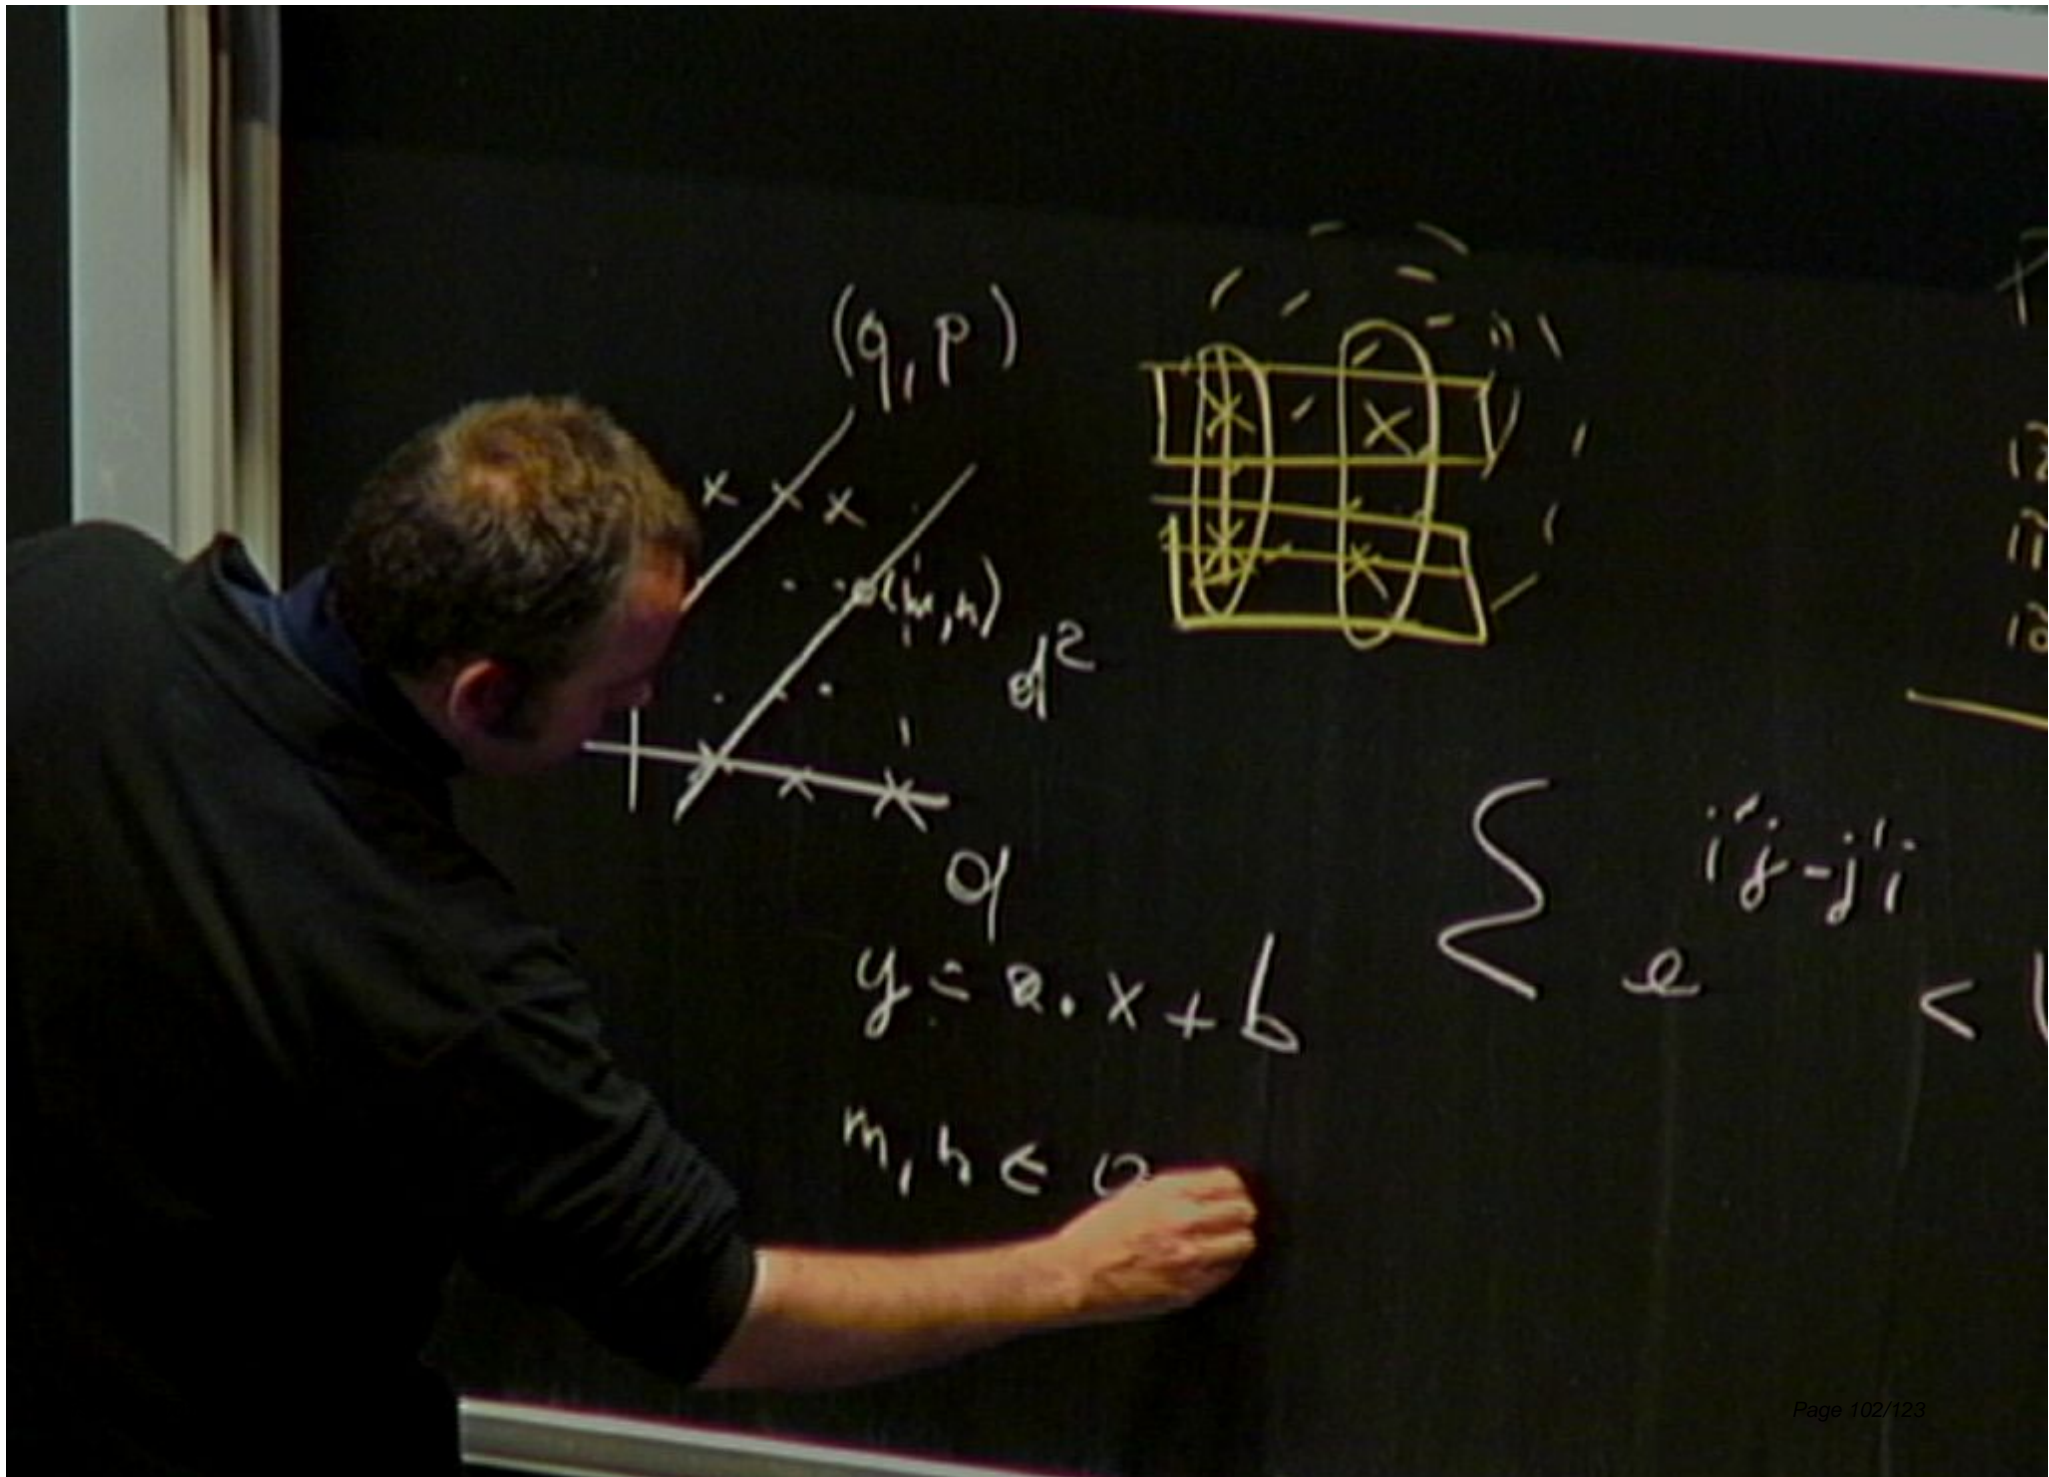 (q, p)
(m, n)
d²
d
y = a · x + b
Σ e^{i'j-j'i}
<
m, n ∈
Page 102/123